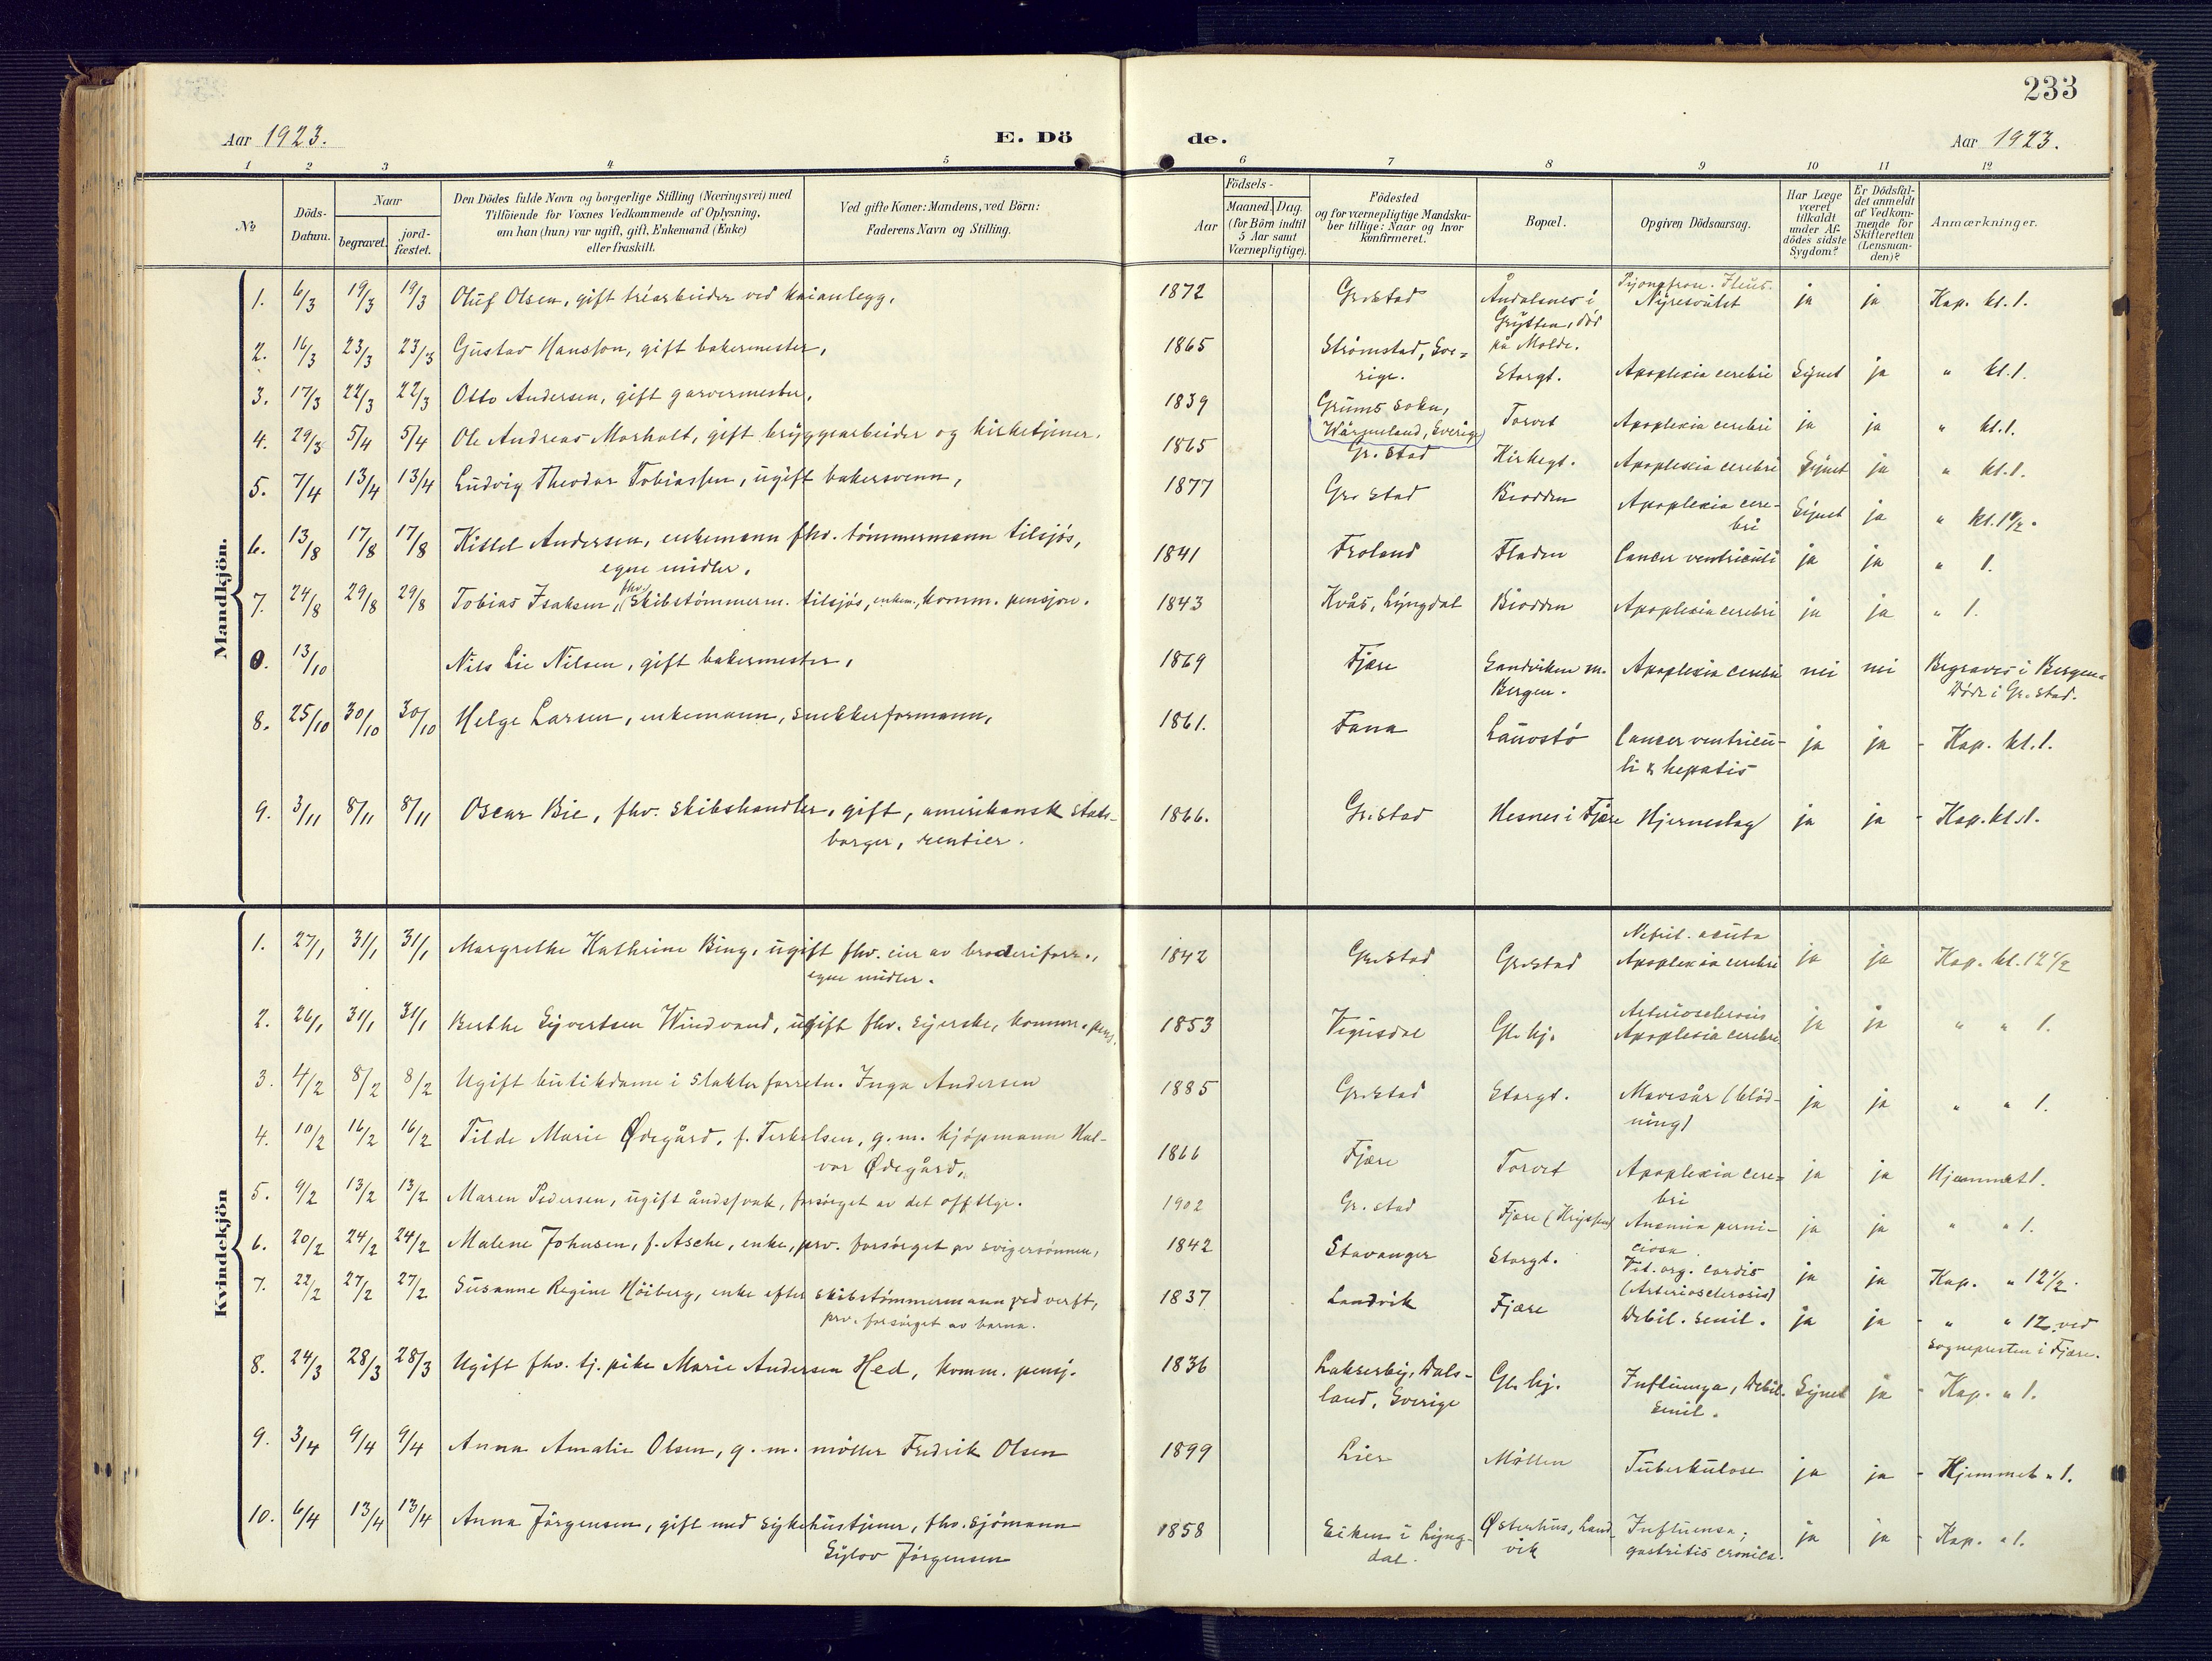 233
Aar 1923.
E. Dö
de.
Aar 1923.
1 2 3 4 5 6 7 8 9 10 11 12
No
Döds-
Datum.
Naar
begravet.
jord-
fæstet.
Den Dödes fulde Navn og borgerlige Stilling (Næringsvei) med
Tilföiende for Voxnes Vedkommende af Oplysning,
om han (hun) var ugift, gift, Enkemand (Enke)
eller fraskilt.
Ved gifte Koner: Mandens, ved Börn:
Faderens Navn og Stilling.
Födsels-
Aar
Maaned. Dag.
(for Börn indtil
5 Aar samt
Værnepligtige).
Födested
og for værnepligtige Mandska-
ber tillige: Naar og hvor
konfirmeret.
Bopæl.
Opgiven Dödsaarsag.
Har Læge
været
tilkaldt
under Af-
dödes sidste
Sygdom?
Er Dödsfal-
det anmeldt
af Vedkom-
mende for
Skifteretten
(Lensman-
den)?
Anmærkninger.
Mandkjön.
1. 6/3 19/3 19/3 Oluf Olsen, gift trearbeider ved kaianlegg, 1872 Gr.stad Åndalsnes i Nyresvulst ja ja Kap. kl. 1.
Grytten, död
på Molde.
2. 16/3 23/3 23/3 Gustav Hansson, gift bakermester, 1865 Strömstad, Sve-
rige. Storgt. Apoplexia cerebri Synet ja " kl. 1.
3. 17/3 22/3 22/3 Otto Andersen, gift garvermester, 1839 Grums sokn,
Wärmland, Sverige Torvet Apoplexia cerebri ja ja " kl. 1.
4. 29/3 5/4 5/4 Ole Andreas Morholt, gift bryggearbeider og kirketjener. 1865 Gr.stad Kirkegt. Apoplexia cerebri Synet ja " kl. 1.
5. 7/4 13/4 13/4 Ludvig Theodor Tobiassen, ugift bakersvenn, 1877 Gr.stad Biodden Apoplexia cere-
bri Synet ja " kl. 1½.
6. 13/8 17/8 17/8 Kittel Andersen, enkemann fhv. tömmermann tilsjös,
egne midler. 1841 Froland Fladen Cancer ventriculi ja ja " 1.
7. 24/8 29/8 29/8 Tobias Isaksen, fhv. skibstömmerm. tilsjös, enkem., komm. pensjon. 1843 Kvås, Lyngdal Biodden Apoplexia cerebri ja ja " 1.
0. 13/10 Nils Lie Nilsen, gift bakermester, 1869 Fjære Sandviken m.
Bergen. Apoplexia cerebri nei nei Begraves i Bergen.
Döde i Gr.stad.
8. 25/10 30/10 30/10 Helge Larsen, enkemann, snekkerformann, 1861. Fana Lauvstö Cancer ventricu-
li & hepatis ja ja - Kap. kl. 1.
9. 3/11 8/11 8/11 Oscar Bie, fhv. skibshandler, gift, amerikansk stats-
borger, rentier. 1866. Gr.stad Hesnes i Fjære Hjerneslag ja ja - Kap. kl. 1.
Kvindekjön
1. 27/1 31/1 31/1 Margrethe Kathrine Bing, ugift fhv. eier av broderiforr.,
egne midler. 1842 Gr.stad Gr.stad Nefrit. acuta
Apoplexia cerebri ja ja Kap. kl. 12½
2. 26/1 31/1 31/1 Berthe Syvertsen Windvand, ugift fhv. syerske, komm. pens. 1853 Vegusdal Gl.hj. Arteriosclerosis
Apoplexia cerebri ja ja " " 1.
3. 4/2 8/2 8/2 Ugift butikdame i slakterforretn. Inga Andersen 1885 Gr.stad Storgt. Mavesår (blöd-
ning) ja ja " " 1.
4. 10/2 16/2 16/2 Tilde Marie Ødegård, f. Terkelsen, g. m. kjöpmann Hal-
vor Ødegård, 1866 Fjære Torvet Apoplexia cere-
bri ja ja Hjemmet 1.
5. 9/2 13/2 13/2 Maren Pedersen, ugift åndssvak, forsörget av det offtlge. 1902 Gr.stad Fjære Anæmia perni-
ciosa. ja ja " " 1.
6. 20/2 24/2 24/2 Malene Johnsen, f. Asche, enke, prv. forsörget av svigersönnen, 1842 Stavanger Storgt. Vit. org. cordis
(Arteriosclerosis) ja ja Kap. " 12½.
7. 22/2 27/2 27/2 Susanne Regine Höiberg, enke efter skibstömmermann ved verft,
prv. forsörget av barna. 1837 Landvik Fjære Debil. senil. ja ja - " " 12. ved
sognepresten i Fjære.
8. 24/3 28/3 28/3 Ugift fhv. tj.pike Marie Andersen Hed, komm. pensj. 1836 Lakserby, Dals-
land, Sverige Gl. hj. Influenza, Debil.
senil. Synet ja - Kap. " 1.
9. 3/4 9/4 9/4 Anna Amalie Olsen, g. m. möller Fredrik Olsen 1899 Lier Möllen Tuberkulose ja ja - Hjemmet " 1.
10. 6/4 13/4 13/4 Anna Jörgensen, gift med sykehustjener, fhv. sjömann
Sylov Jörgensen 1858 Eiken i Lyng-
dal. Østerhus, Land-
vik Influensa;
gastritis cronica. ja ja - Kap. " 1.